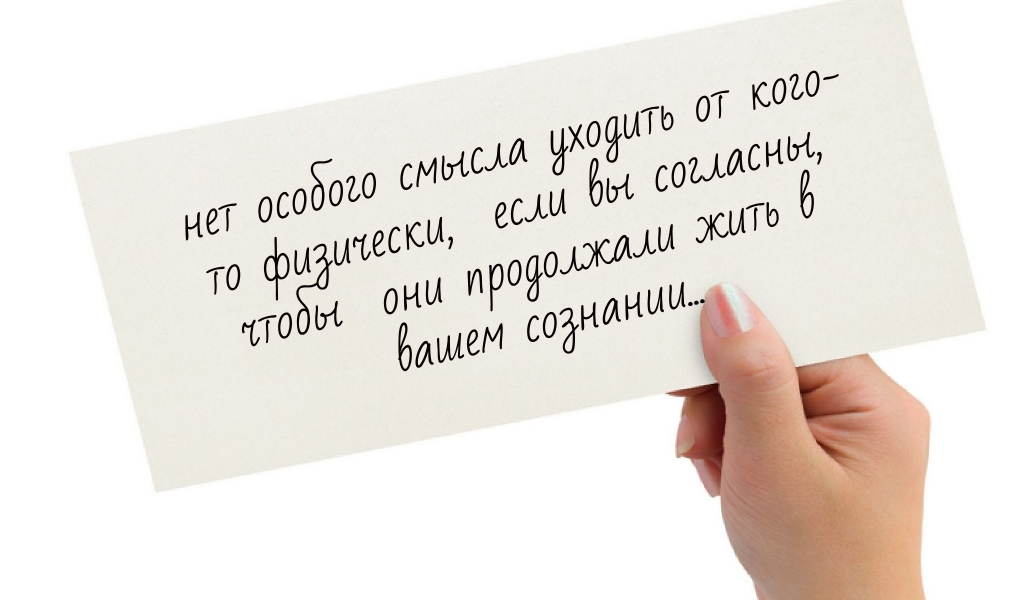 нет особого смысла уходить от кого-
то физически, если вы согласны,
чтобы они продолжали жить в
вашем сознании...